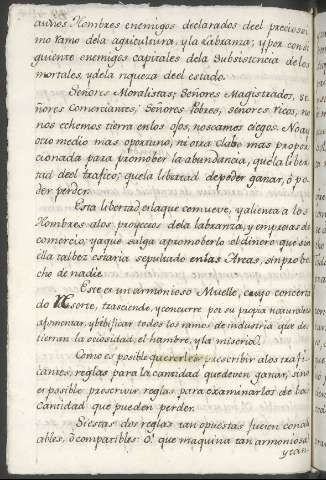 aun es Hombres enemigos declarados deel preciosisi-
mo ramo dela agricultura, y la Labranza; y por consi
guiente enemigos capitales dela Subsistencia de los
mortales, y dela riqueza deel estado.
Señores Moralistas; Señores Magistrados, Se
ñores Comerciantes; Señores Pobres, señores ricos, no
nos echemos tierra en los ojos, no seamos ciegos. No ay
otro medio mas oportuno, ni otra clabe mas propor
cionada para promober la abundancia, que la liber
tad deel trafico; que la libertad de poder ganar, ó po-
der perder.
Esta libertad, es la que comueve, y alienta a los
Hombres alos proyectos dela labranza, y empresas de
comercio; y aque salga apromoberlo el dinero que sin
ella talbez estaria sepultado en las Arcas, sin probe
cho de nadie.
Este es un armonioso Muelle, cuyo concerta
do Resorte, trasciende, y concurre por su propia naturaleza
afomentar, y bibificar todos los ramos de industria que des
tierran la ociosidad, el hambre, y la miseria.
Como es posible quererles prescribir alos trafi
cantes, reglas para la cantidad que deven ganar, sino
es posible prescrivir reglas para examinarlos de las
Cantidad que pueden perder.
Si estas dos reglas tan opuestas fueren concili
ables, ó compatibles: ó! que maquina tan armoniosa!
y tan